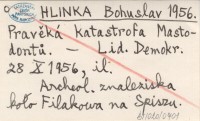 HLINKA Bohuslav 1956.
Pravěká katastrofa Masto-
dontů. — Lid. Demokr.
28 X 1956, il.
Archeol. znaleziska
koło Filakowa na Spiszu.